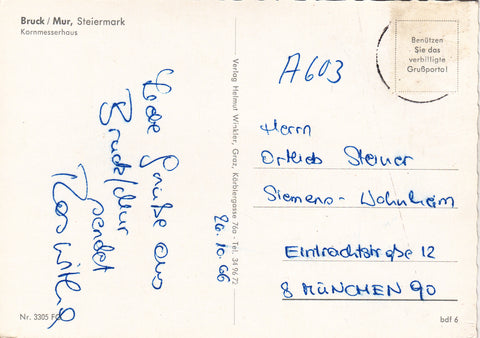 Bruck / Mur, Steiermark
Kornmesserhaus
Liebe Grüße aus
Bruck/Mur
sendet
Roswitha
26.10.66
Nr. 3305 FG
Verlag Helmut Winkler, Graz, Körblergasse 76a - Tel. 34 96 72
Benützen
Sie das
verbilligte
Grußporto!
A603
Herrn
Ortlieb Steiner
Siemens-Wohnheim
Eintrachtstraße 12
8 MÜNCHEN 90
bdf 6